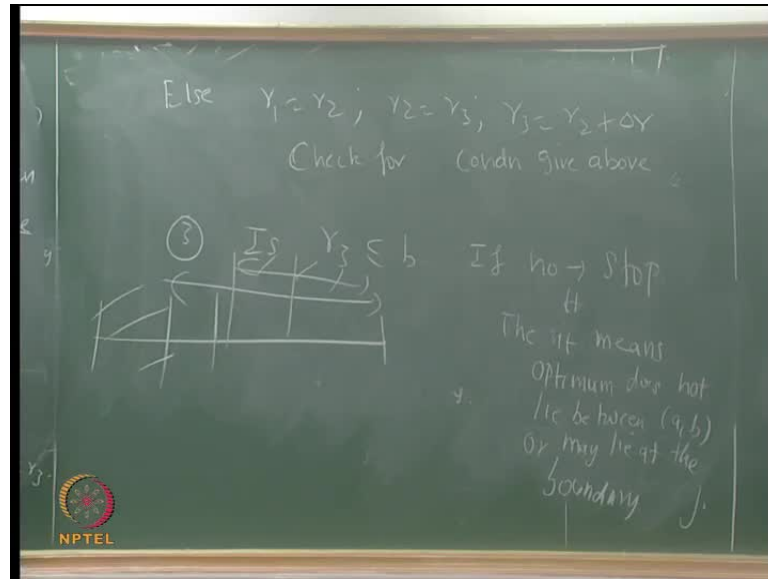 Else γ₁ = γ₂ ; γ₂ = γ₃ ; γ₃ = γ₂ + Δγ
Check for condn give above
③ Is γ₃ ≤ b
If no → Stop
The it means
optimum does not
lie between (a, b)
or may lie at the
boundary
NPTEL